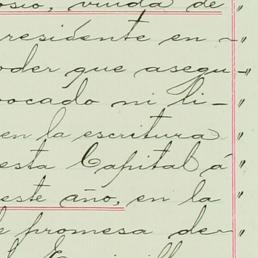 osio, viuda de
residente en
oder que asegu-
vocado ni li-
en la escritura
esta Capital á
este año, en la
e promesa de